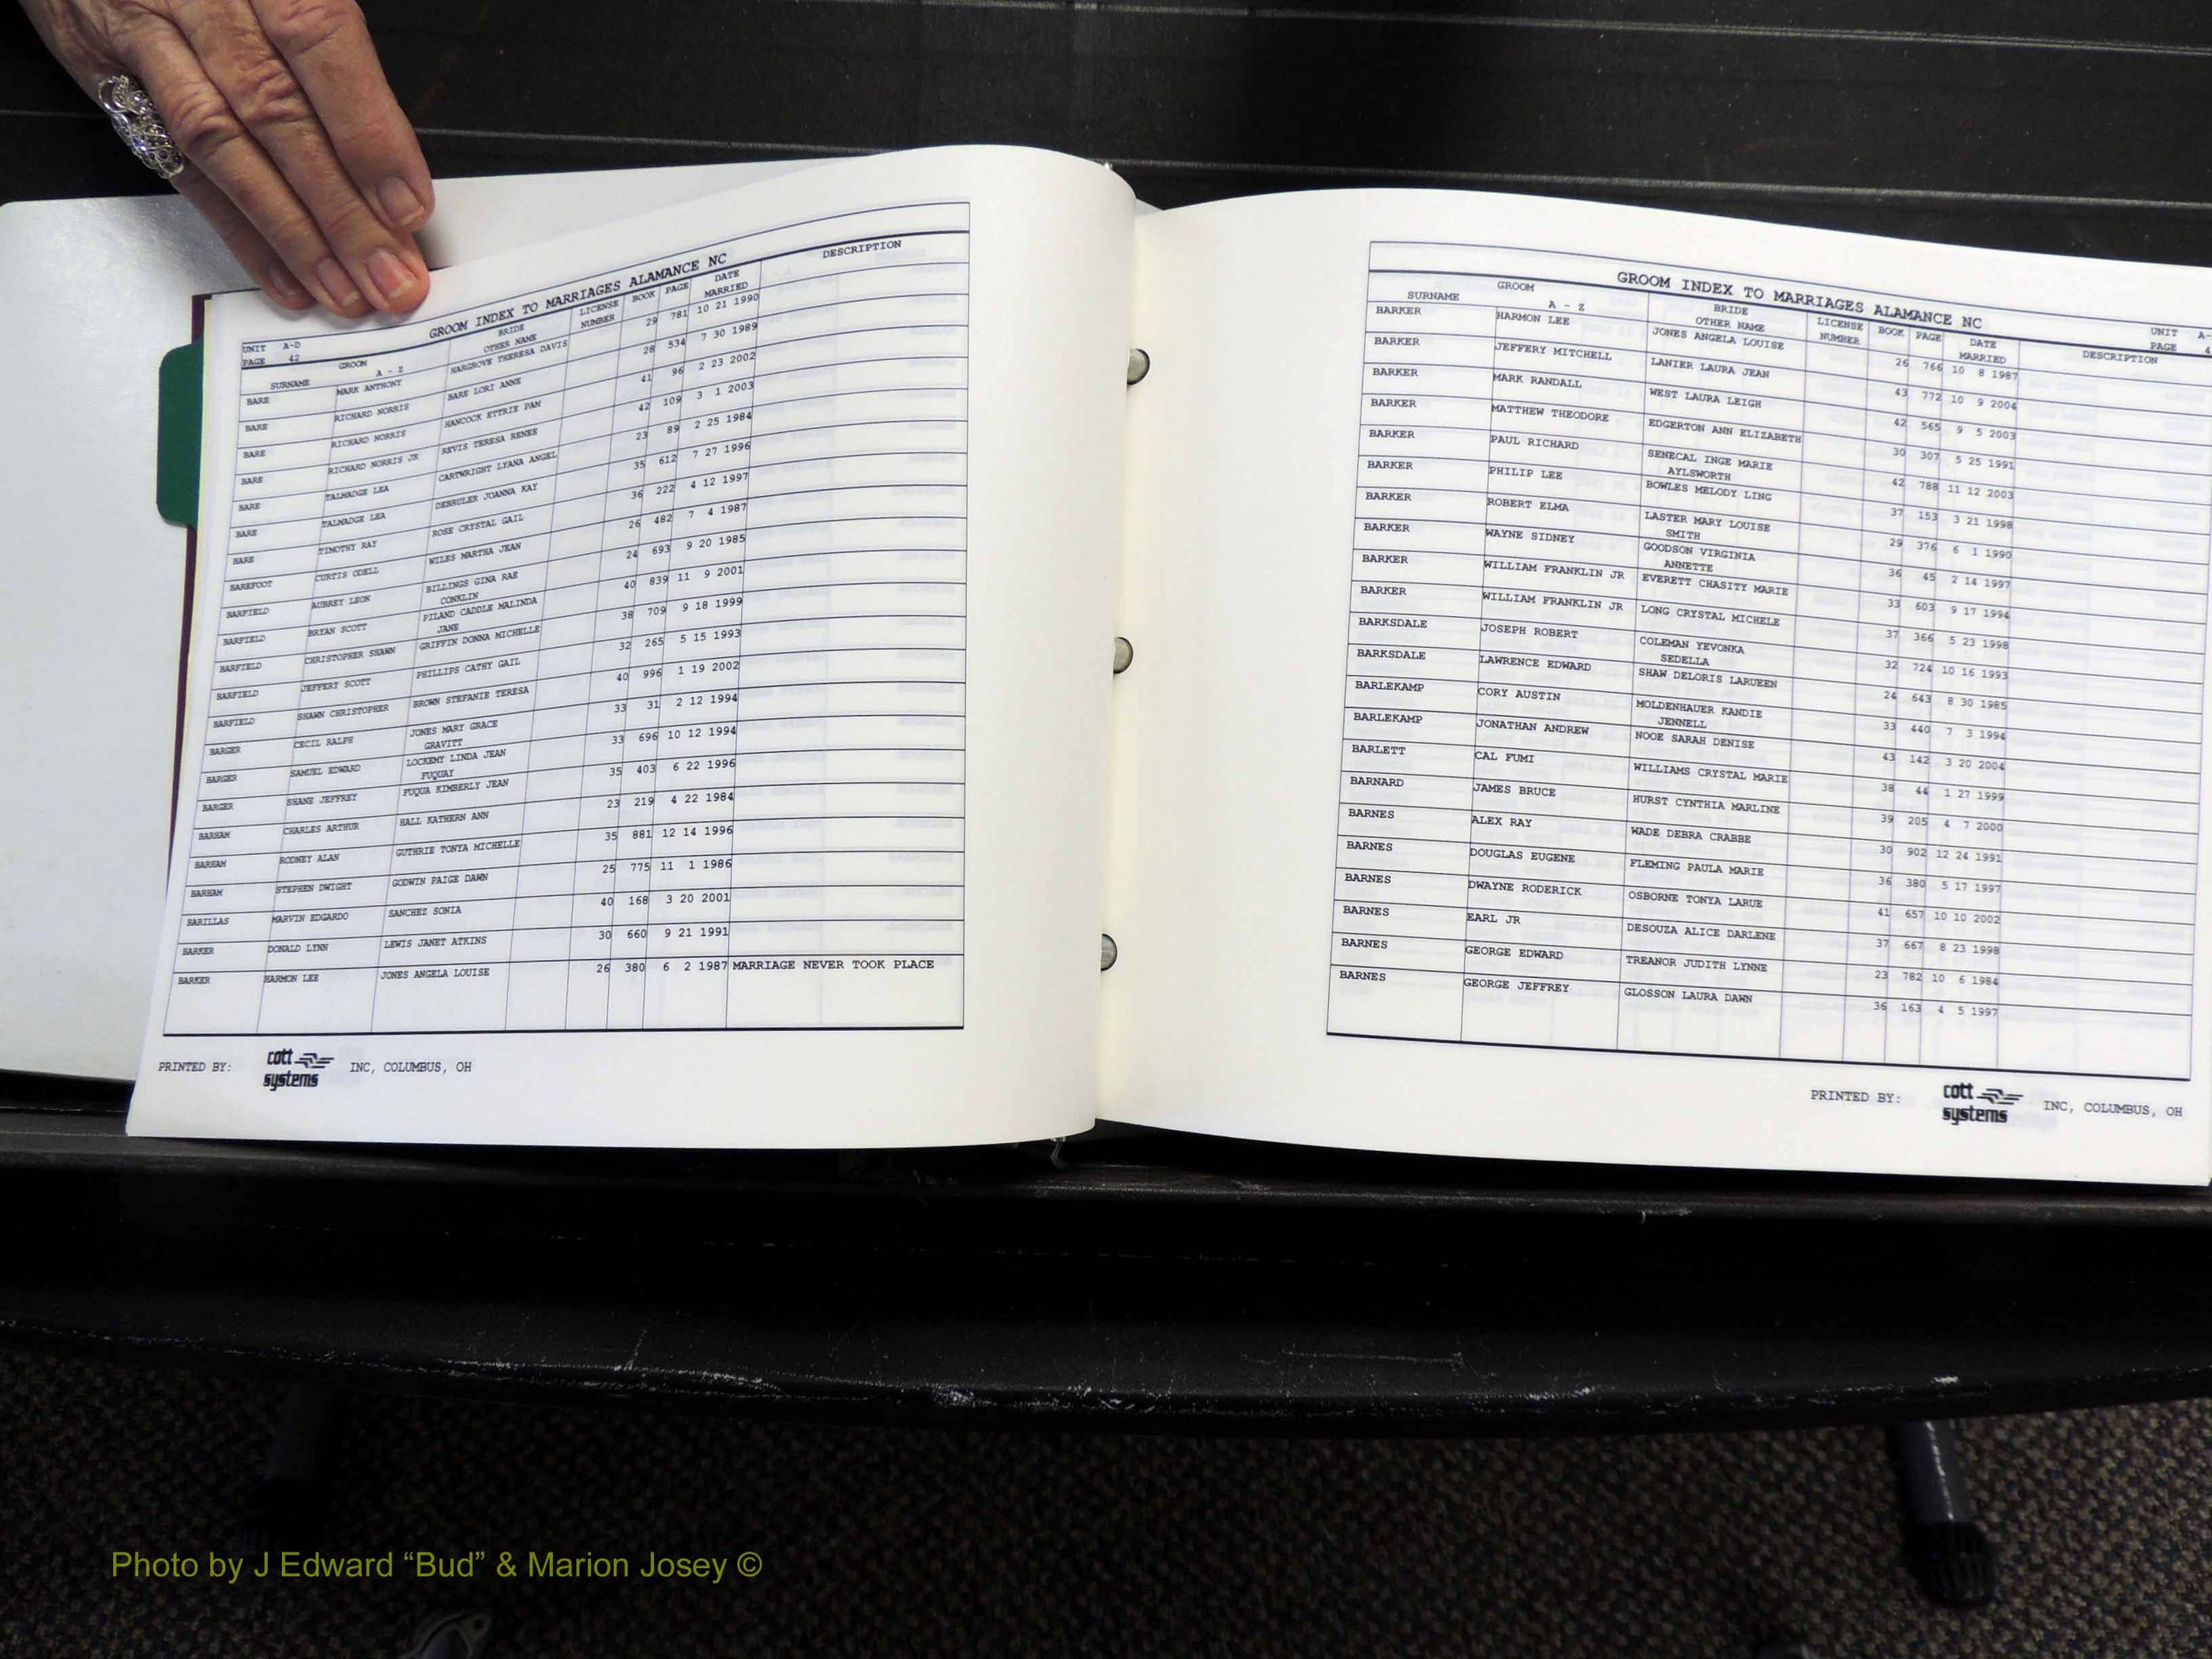 GROOM INDEX TO MARRIAGES ALAMANCE NC
UNIT A-D
PAGE 42
SURNAME GROOM A - Z BRIDE OTHER NAME LICENSE NUMBER BOOK PAGE DATE MARRIED DESCRIPTION
BARE MARK ANTHONY HARGROVE THERESA DAVIS 29 781 10 21 1990
BARE RICHARD NORRIS BARE LORI ANNE 28 534 7 30 1989
BARE RICHARD NORRIS HANCOCK ETTRIE PAM 41 96 2 23 2002
BARE RICHARD NORRIS JR REVIS TERESA RENEE 42 109 3 1 2003
BARE TALMADGE LEA CARTWRIGHT LYANA ANGEL 23 89 2 25 1984
BARE TALMADGE LEA DEBRULER JOANNA KAY 35 612 7 27 1996
BARE TIMOTHY RAY ROSE CRYSTAL GAIL 36 222 4 12 1997
BAREFOOT CURTIS ODELL WILES MARTHA JEAN 26 482 7 4 1987
BARFIELD AUBREY LEON BILLINGS GINA RAE 24 693 9 20 1985
CONKLIN
BARFIELD BRYAN SCOTT PILAND CADDLE MALINDA 40 839 11 9 2001
JANE
BARFIELD CHRISTOPHER SHAWN GRIFFIN DONNA MICHELLE 38 709 9 18 1999
BARFIELD JEFFERY SCOTT PHILLIPS CATHY GAIL 32 265 5 15 1993
BARFIELD SHAWN CHRISTOPHER BROWN STEFANIE TERESA 40 996 1 19 2002
BARGER CECIL RALPH JONES MARY GRACE 33 31 2 12 1994
GRAVITT
BARGER SAMUEL EDWARD LOCKEMY LINDA JEAN 33 696 10 12 1994
FUQUAY
BARGER SHANE JEFFREY FUQUA KIMBERLY JEAN 35 403 6 22 1996
BARHAM CHARLES ARTHUR HALL KATHERN ANN 23 219 4 22 1984
BARHAM RODNEY ALAN GUTHRIE TONYA MICHELLE 35 881 12 14 1996
BARHAM STEPHEN DWIGHT GODWIN PAIGE DAWN 25 775 11 1 1986
BARILLAS MARVIN EDGARDO SANCHEZ SONIA 40 168 3 20 2001
BARKER DONALD LYNN LEWIS JANET ATKINS 30 660 9 21 1991
BARKER HARMON LEE JONES ANGELA LOUISE 26 380 6 2 1987 MARRIAGE NEVER TOOK PLACE
PRINTED BY: cott systems INC, COLUMBUS, OH
GROOM INDEX TO MARRIAGES ALAMANCE NC
UNIT A-
PAGE 4
SURNAME GROOM A - Z BRIDE OTHER NAME LICENSE NUMBER BOOK PAGE DATE MARRIED DESCRIPTION
BARKER HARMON LEE JONES ANGELA LOUISE 26 766 10 8 1987
BARKER JEFFERY MITCHELL LANIER LAURA JEAN 43 772 10 9 2004
BARKER MARK RANDALL WEST LAURA LEIGH 42 565 9 5 2003
BARKER MATTHEW THEODORE EDGERTON ANN ELIZABETH 30 307 5 25 1991
BARKER PAUL RICHARD SENECAL INGE MARIE 42 788 11 12 2003
AYLSWORTH
BARKER PHILIP LEE BOWLES MELODY LING 37 153 3 21 1998
BARKER ROBERT ELMA LASTER MARY LOUISE 29 376 6 1 1990
SMITH
BARKER WAYNE SIDNEY GOODSON VIRGINIA 36 45 2 14 1997
ANNETTE
BARKER WILLIAM FRANKLIN JR EVERETT CHASITY MARIE 33 603 9 17 1994
BARKER WILLIAM FRANKLIN JR LONG CRYSTAL MICHELE 37 366 5 23 1998
BARKSDALE JOSEPH ROBERT COLEMAN YEVONKA 32 724 10 16 1993
SEDELLA
BARKSDALE LAWRENCE EDWARD SHAW DELORIS LARUEEN 24 643 8 30 1985
BARLEKAMP CORY AUSTIN MOLDENHAUER KANDIE 33 440 7 3 1994
JENNELL
BARLEKAMP JONATHAN ANDREW NOOE SARAH DENISE 43 142 3 20 2004
BARLETT CAL FUMI WILLIAMS CRYSTAL MARIE 38 44 1 27 1999
BARNARD JAMES BRUCE HURST CYNTHIA MARLINE 39 205 4 7 2000
BARNES ALEX RAY WADE DEBRA CRABBE 30 902 12 24 1991
BARNES DOUGLAS EUGENE FLEMING PAULA MARIE 36 380 5 17 1997
BARNES DWAYNE RODERICK OSBORNE TONYA LARUE 41 657 10 10 2002
BARNES EARL JR DESOUZA ALICE DARLENE 37 667 8 23 1998
BARNES GEORGE EDWARD TREANOR JUDITH LYNNE 23 782 10 6 1984
BARNES GEORGE JEFFREY GLOSSON LAURA DAWN 36 163 4 5 1997
PRINTED BY: cott systems INC, COLUMBUS, OH
Photo by J Edward “Bud” & Marion Josey ©